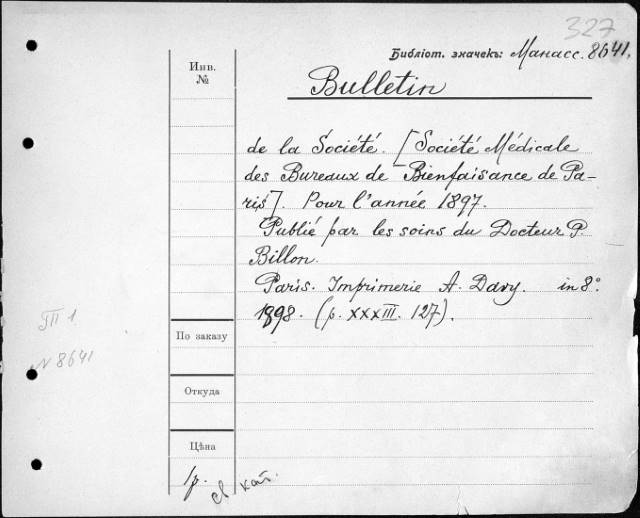 327
Библіот. значекъ: Манасс. 8641.
Инв.
№
Bulletin
de la Société. [Société Médicale
des Bureaux de Bienfaisance de Pa-
ris]. Pour l'année 1897.
Publié par les soins du Docteur P.
Billon.
Paris. Imprimerie A. Davy. in 8°.
1898. (p. XXXIII. 127).
ТП 1
N 8641
По заказу
Откуда
Цѣна
1р.
св кат.